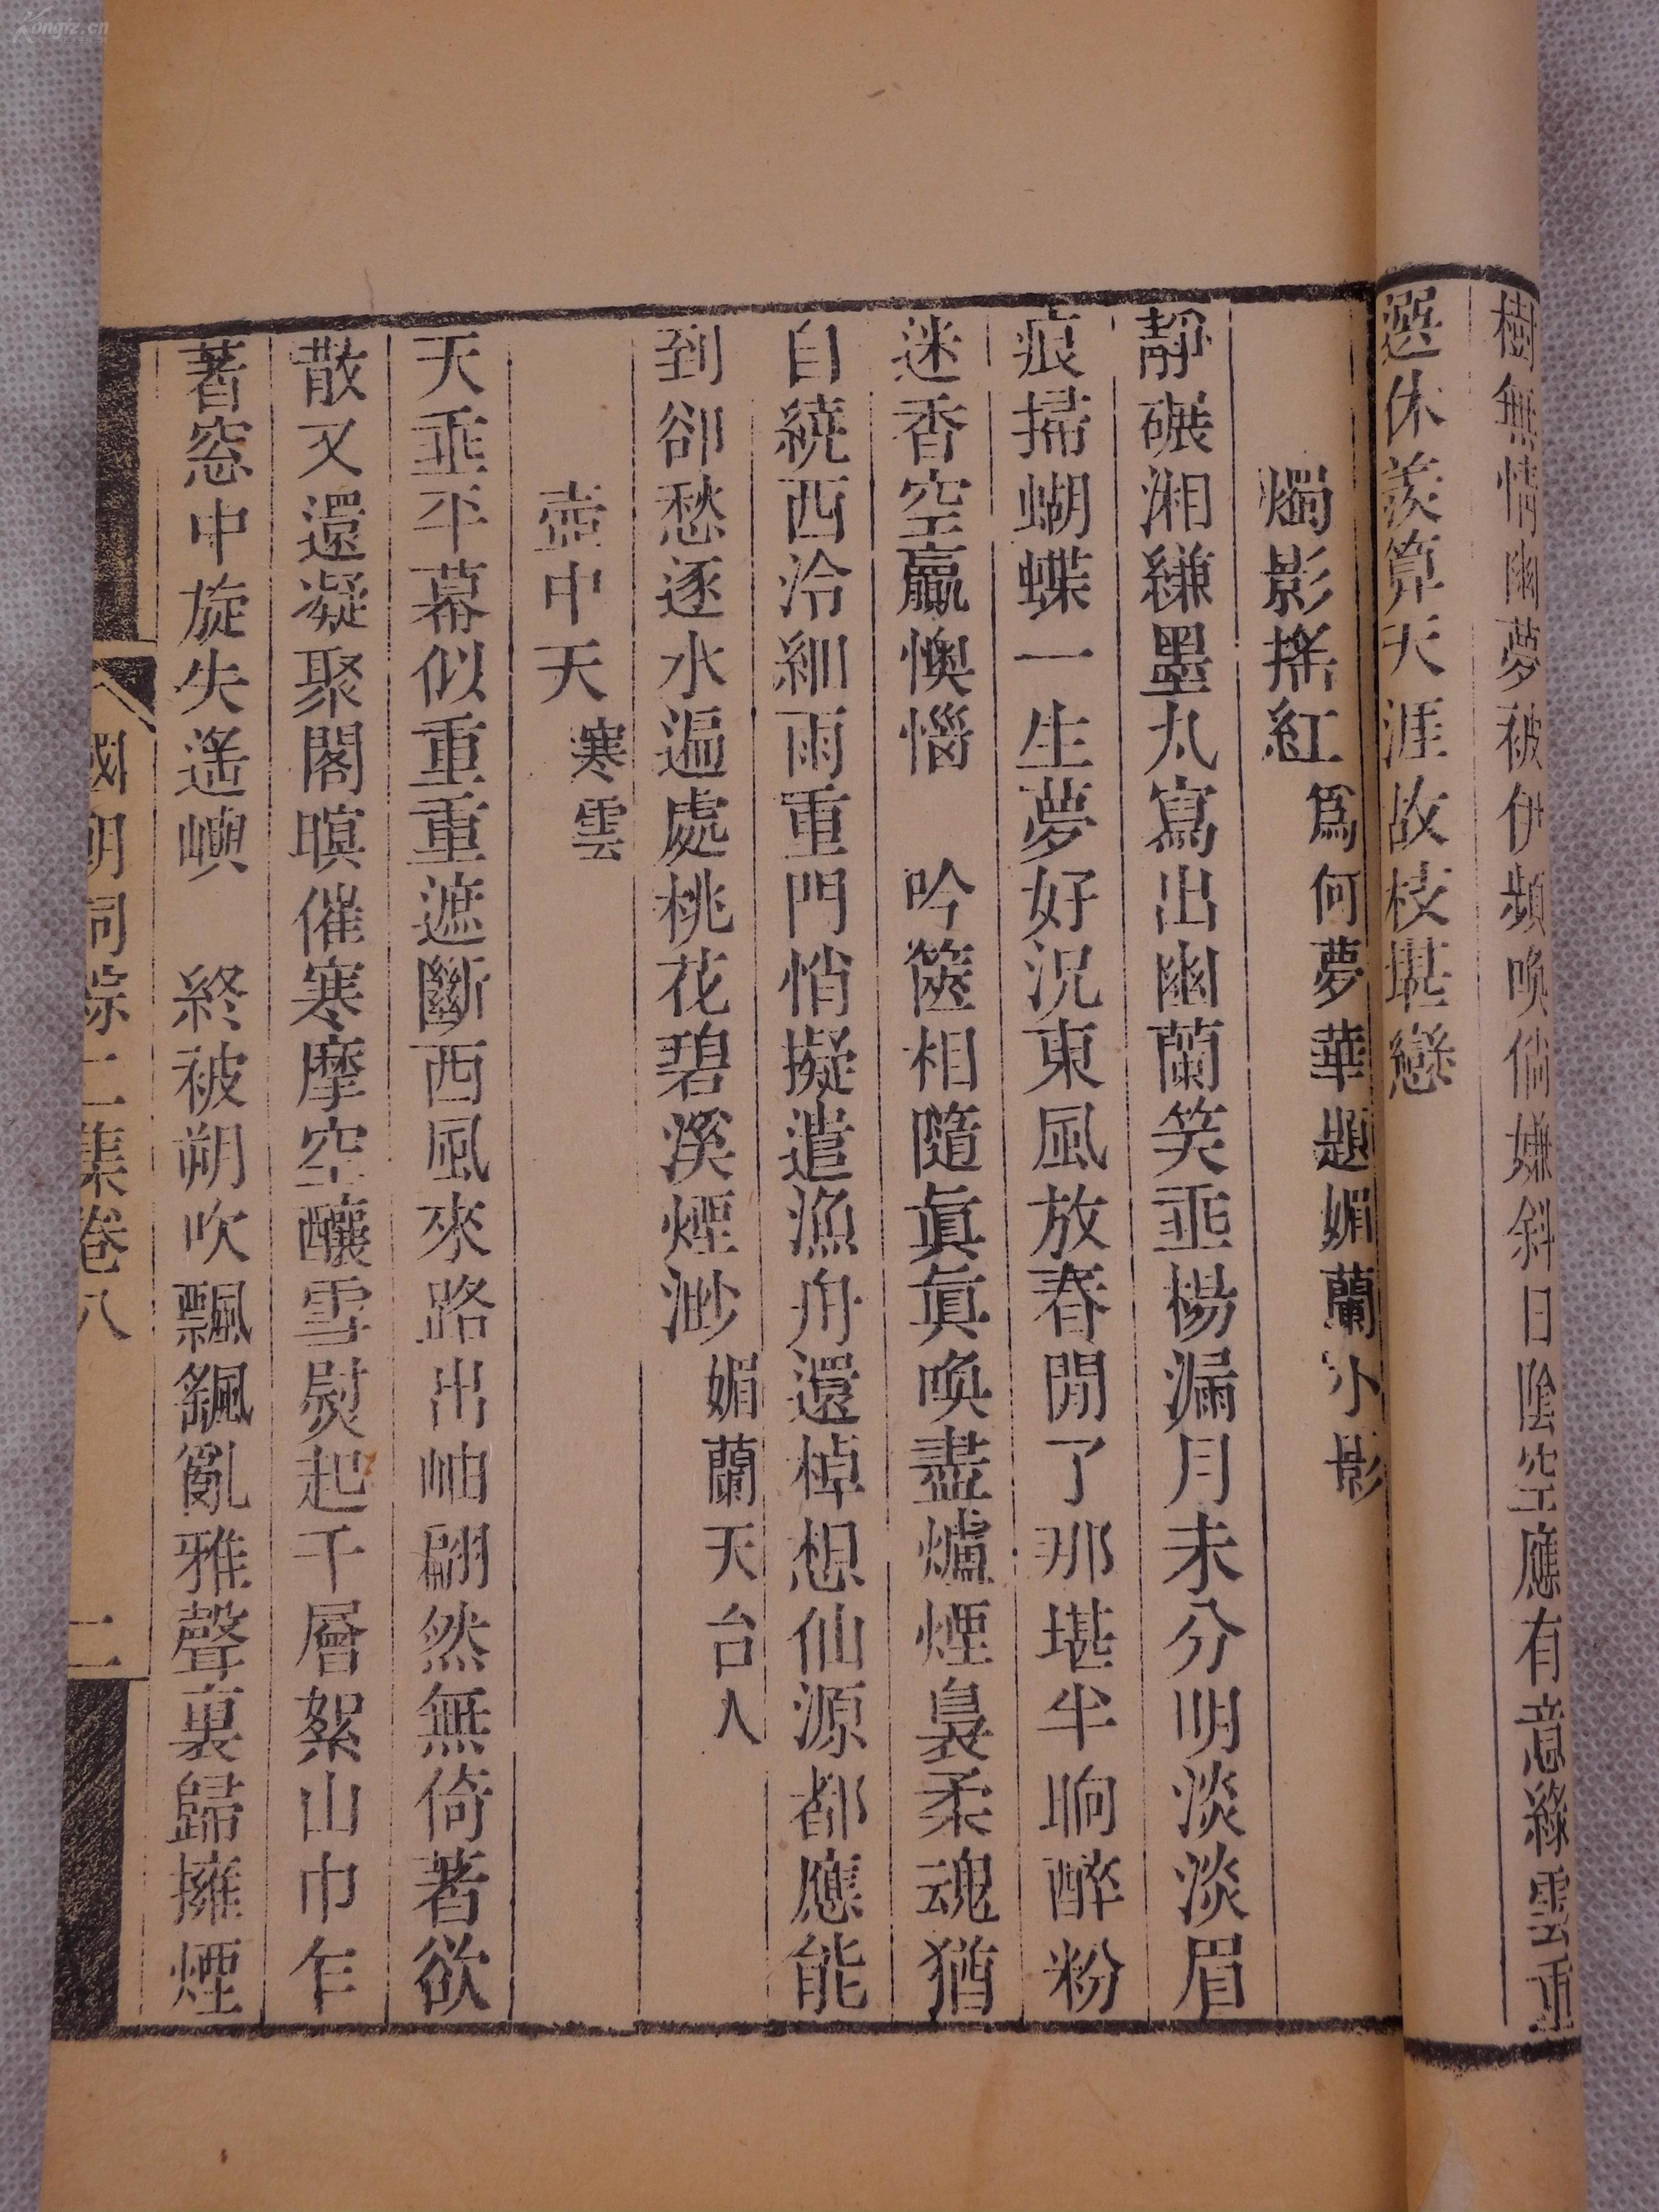 樹無情幽夢被伊頻喚倘嫌斜日陰空應有意綠雲重
選休羨算天涯故枝堪戀
燭影搖紅 爲何夢華題媚蘭小影
靜碾湘縑墨丸寫出幽蘭笑垂楊漏月未分明淡淡眉
痕掃蝴蝶一生夢好況東風放春閒了那堪半晌醉粉
迷香空贏懊惱 吟篋相隨眞眞喚盡爐煙裊柔魂猶
自繞西泠細雨重門悄擬遣漁舟還棹想仙源都應能
到卻愁逐水遍處桃花碧溪煙渺 媚蘭天台人
壺中天 寒雲
天垂平幕似重重遮斷西風來路出岫翩然無倚著欲
散又還凝聚閣暝催寒摩空釀雪熨起千層絮山巾乍
著窓中旋失遙嶼 終被朔吹飄颻亂雅聲裏歸擁煙
國朝詞綜二集卷八 二
Kongfz.cn